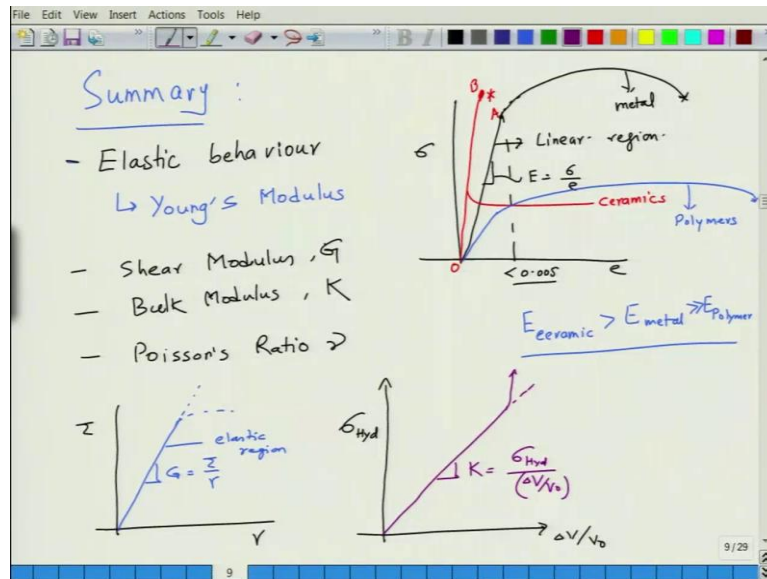 File Edit View Insert Actions Tools Help
Summary :
- Elastic behaviour
↳ Young's Modulus
- Shear Modulus, G
- Bulk Modulus, K
- Poisson's Ratio ν
σ
B
A
metal
Linear-region.
E = σ/e
Ceramics
Polymers
O
<0.005
e
E ceramic > E metal >> E Polymer
τ
elastic
region
G = τ/γ
γ
σ Hyd
K = σ Hyd/(ΔV/V₀)
ΔV/V₀
9/29
9